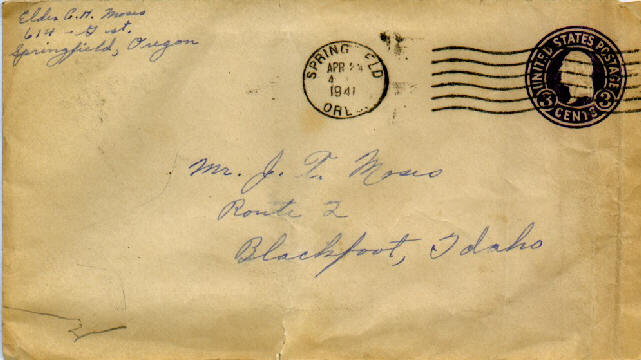 Elder C. A. Moses
614 - G st.
Springfield, Oregon
SPRINGFIELD
APR 24
4
1941
ORE.
UNITED STATES POSTAGE
3 CENTS 3
Mr. J. T. Moses
Route 2
Blackfoot, Idaho